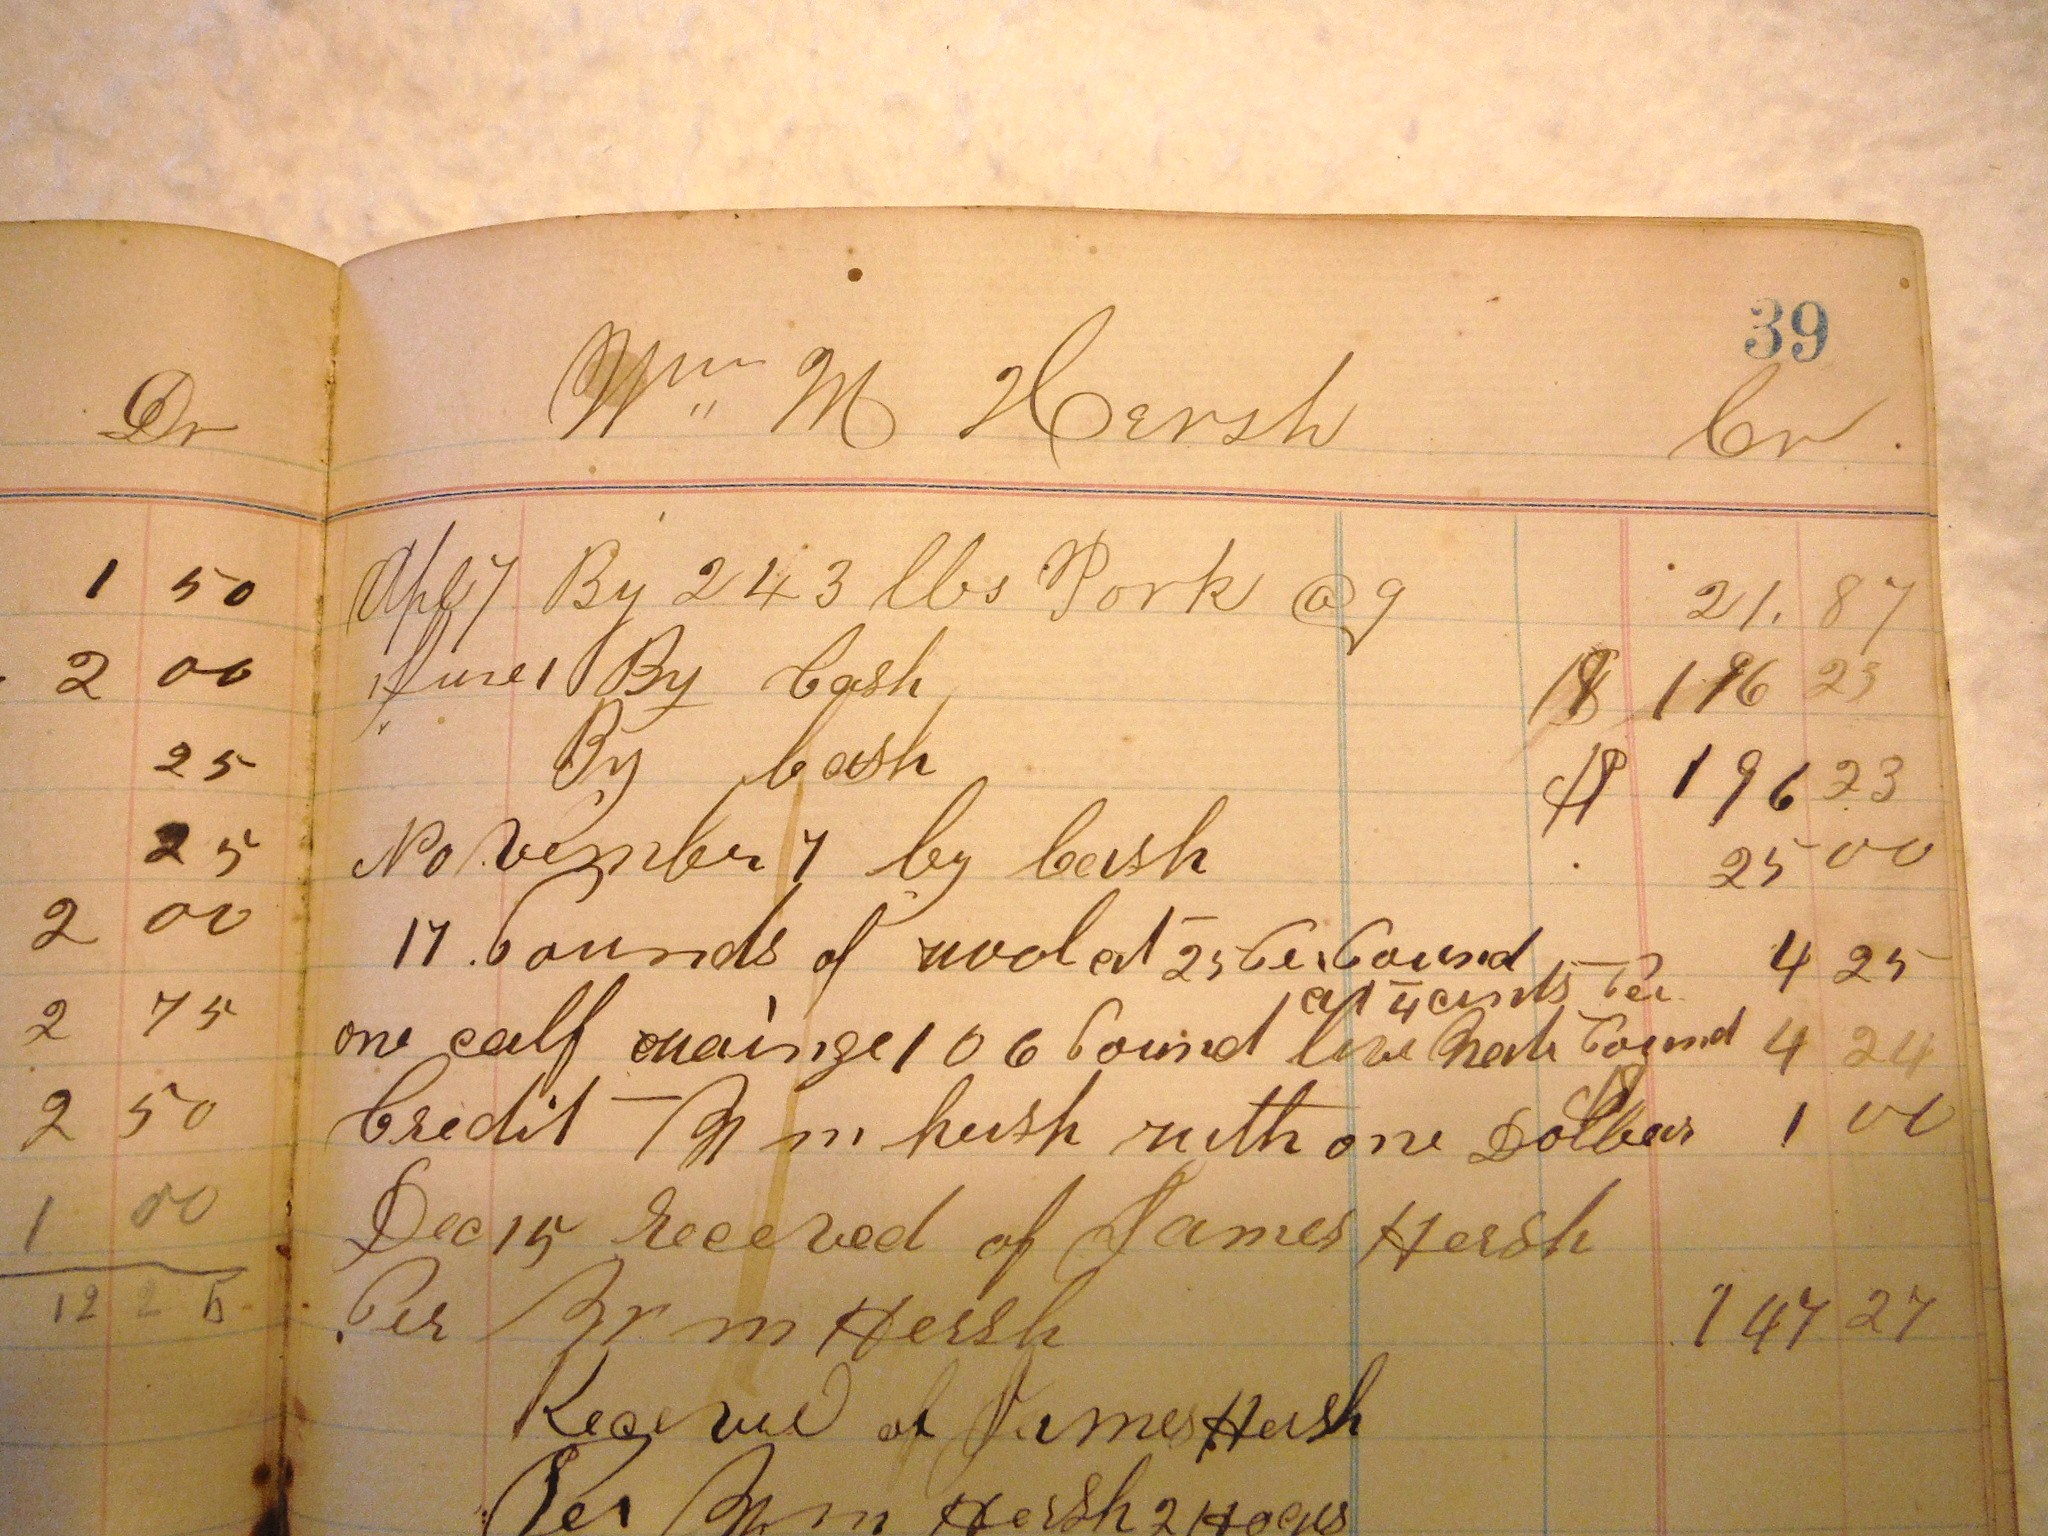 39
Dr
Wm M Hersh Cr
1 50
Apl 7 By 243 lbs Pork @ 9 21.87
2 00
June 1 By Cash $ 196 23
25
By Cash $ 196 23
25
November 7 by Cash 25 00
2 00
17 Pounds of wool at 25 Per Pound 4 25
2 75
at 4 cents Per
one calf 106 Pound live Pound 4 24
2 50
Credit Wm hersh with one Dollar 1 00
1 00
Dec 15 Received of James Hersh
12 2
Per Wm Hersh 147 27
Received of James Hersh
Per Wm Hersh 2 Hogs